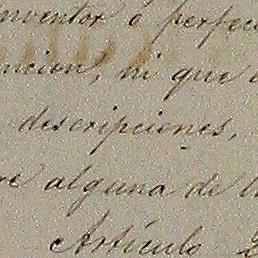 inventor ó perfec
ncion, ni que
descripciones,
re alguna de l
Artículo 2